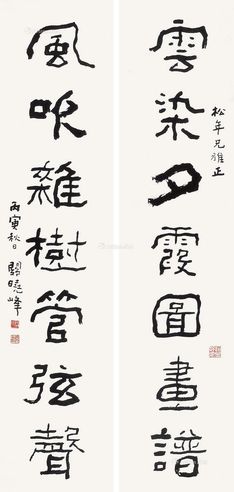 雲染夕霞圖畫譜
松年兄雅正
風吹雜樹管弦聲
丙寅秋日
關曉峰